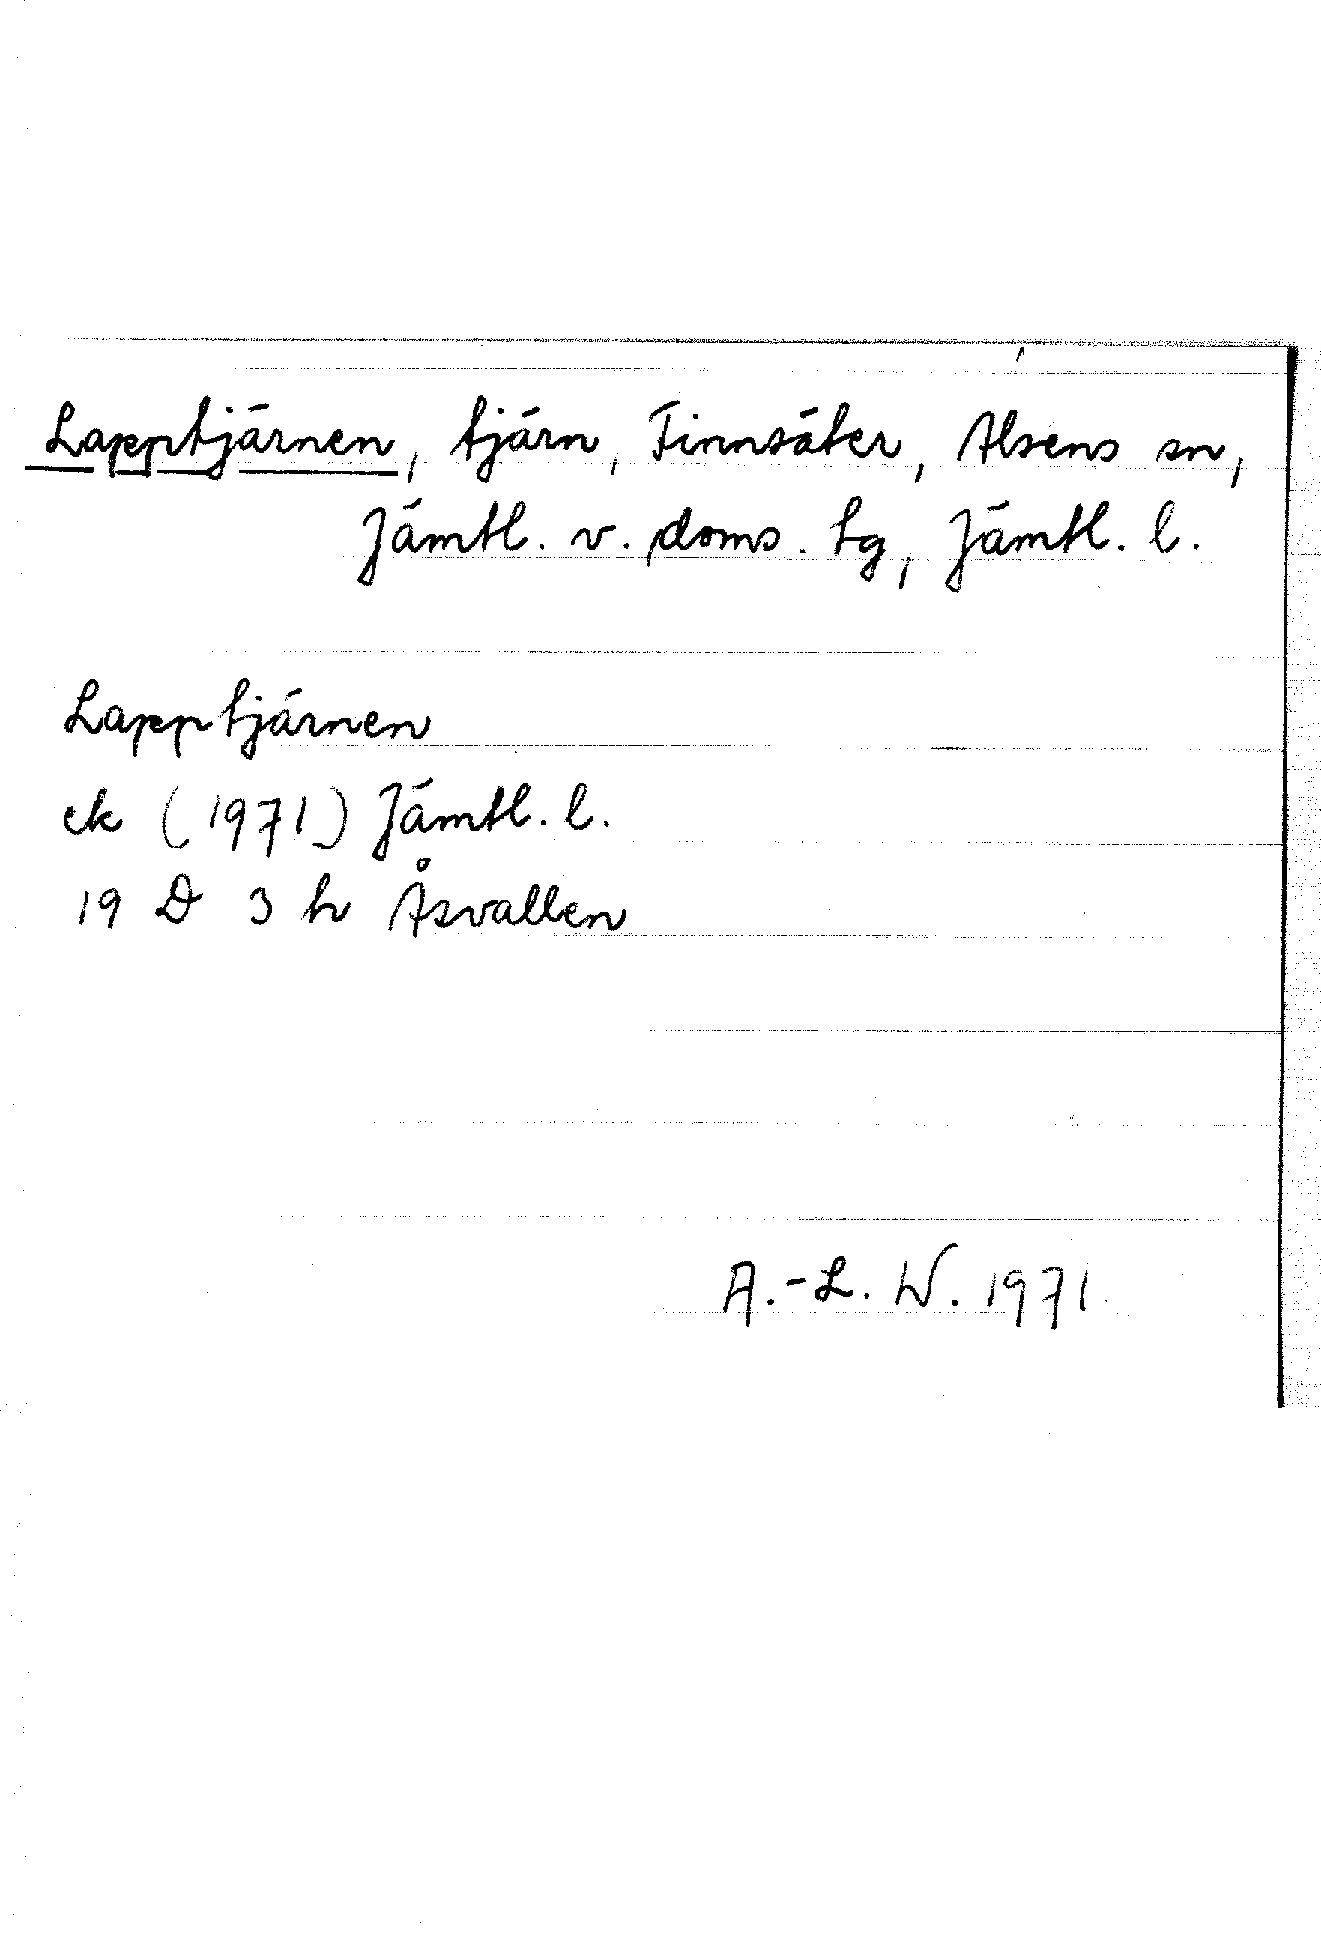 Lapptjärnen, tjärn, Finnsäter, Alsens sn,
Jämtl. v. doms. tg, Jämtl. l.
Lapptjärnen
ek (1971) Jämtl. l.
19 D 3 h Åsvallen
A.-L. W. 1971